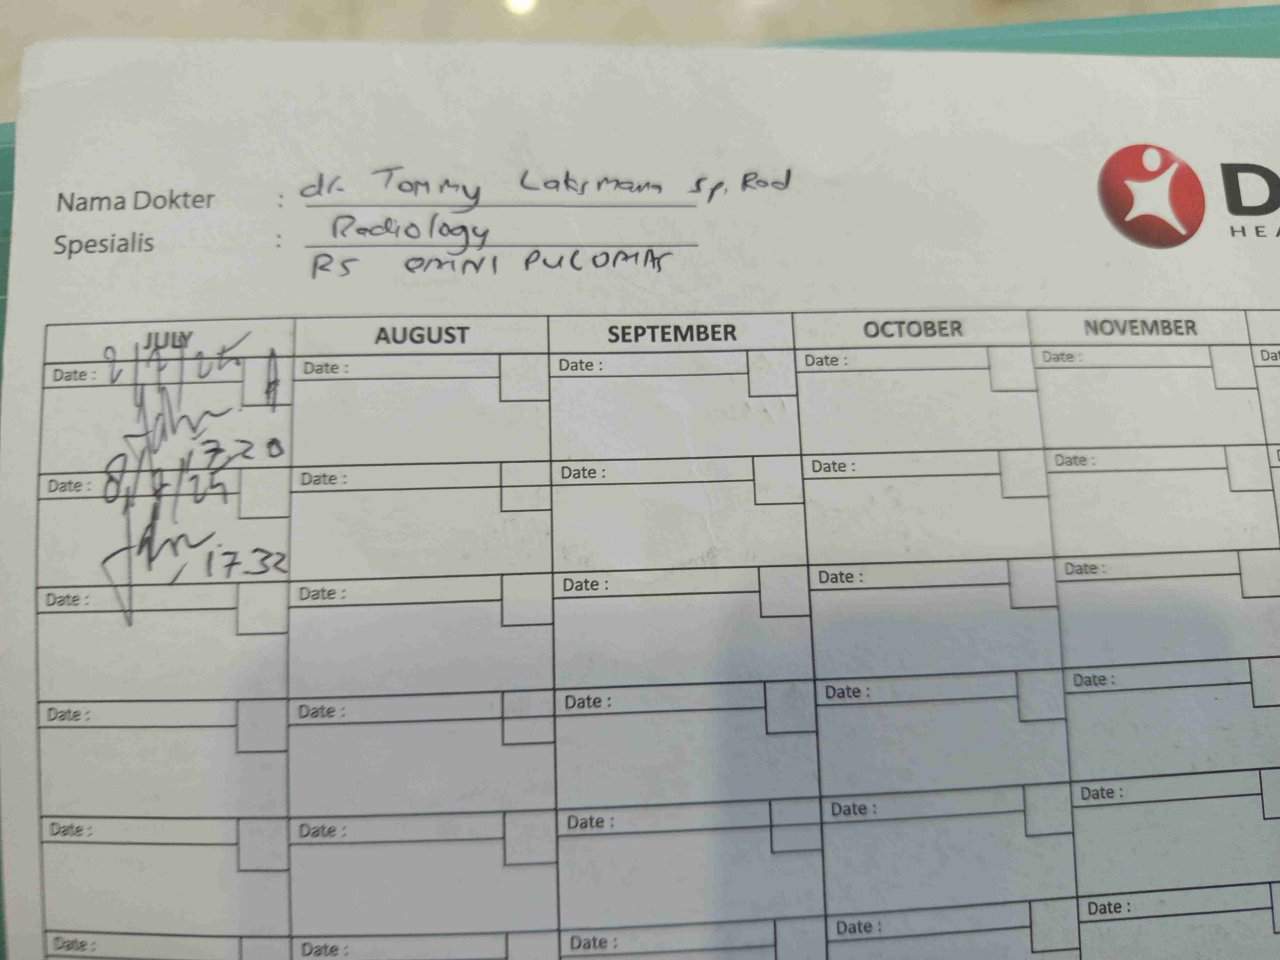 Nama Dokter : dr. Tommy Laksmana Sp. Rad
Spesialis : Radiology
RS OMNI PULOMAS
D
HEA
JULY AUGUST SEPTEMBER OCTOBER NOVEMBER
Date : Date : Date : Date : Date : Dat
17.20
Date : 8/7/25 Date : Date : Date : Date : D
17.32
Date : Date : Date : Date : Date :
Date : Date : Date : Date : Date :
Date : Date : Date : Date : Date :
Date : Date : Date : Date : Date :